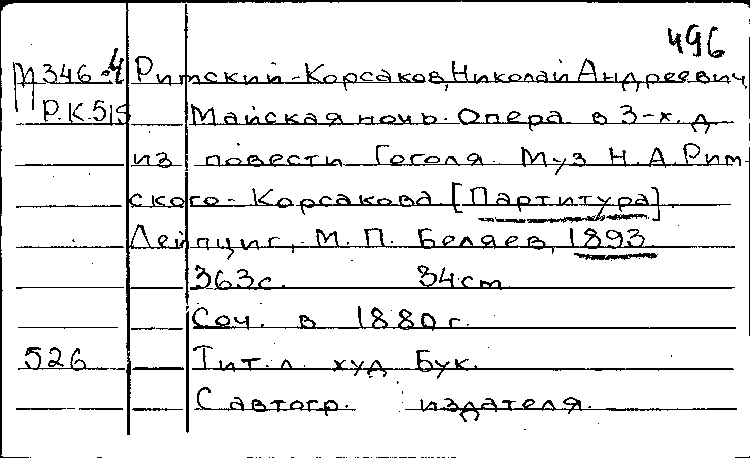 496
М346.4 Римский-Корсаков, Николай Андреевич
Р.К.515 Майская ночь. Опера в 3-х. д
из повести Гоголя. Муз Н.А.Рим-
ского-Корсакова [Партитура].
Лейпциг, М. П. Беляев, 1893.
363с. 34cm
Соч. в 1880г.
526 Тит.л. худ Бук.
С автогр. издателя.